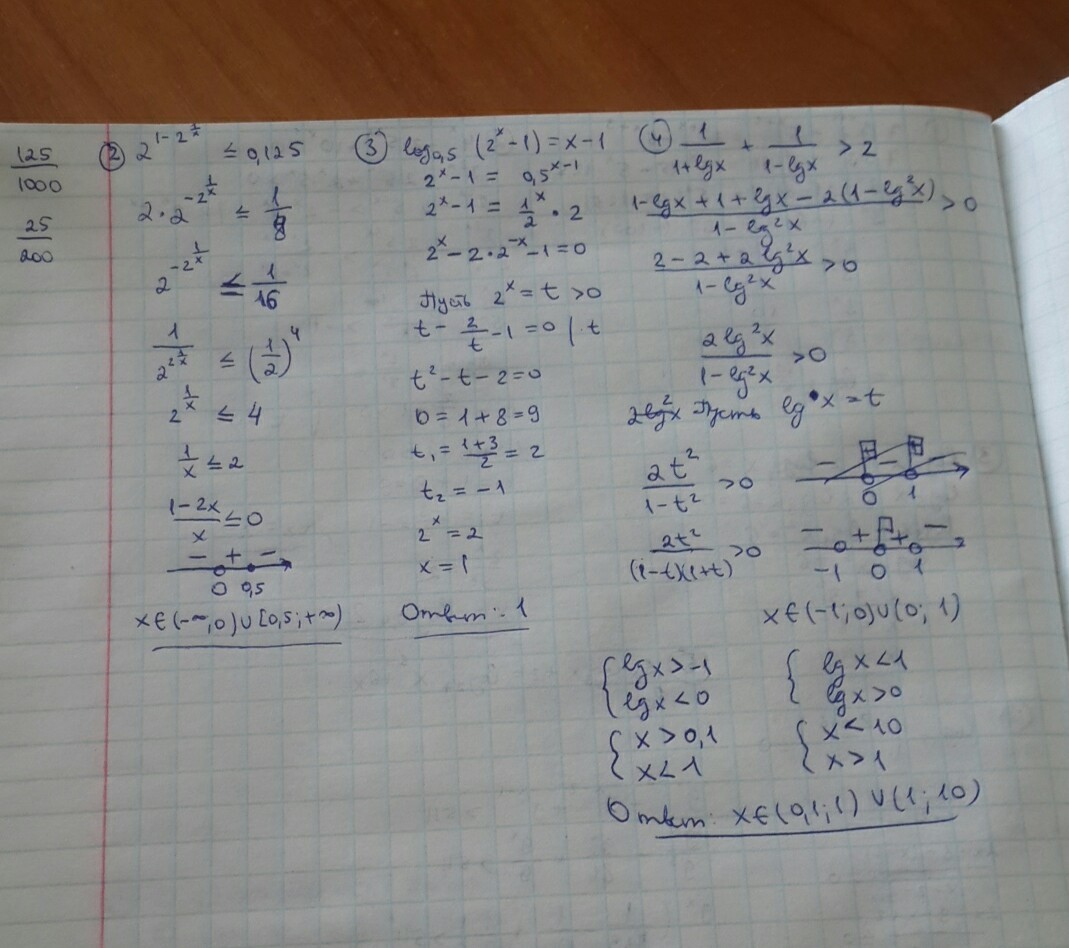 125
1000
25
200
② 2^(1-2^(1/x)) ≤ 0,125
2·2^(-2^(1/x)) ≤ 1/8
2^(-2^(1/x)) ≤ 1/16
1/2^(2^(1/x)) ≤ (1/2)^4
2^(1/x) ≤ 4
1/x ≤ 2
(1-2x)/x ≤ 0
- + -
0 0,5
x∈(-∞,0)∪[0,5;+∞)
③ log_0,5 (2^x-1) = x-1
2^x-1 = 0,5^(x-1)
2^x-1 = 1/2^x · 2
2^x - 2·2^(-x) - 1 = 0
Пусть 2^x = t > 0
t - 2/t - 1 = 0 | t
t² - t - 2 = 0
D = 1 + 8 = 9
t₁ = (1+3)/2 = 2
t₂ = -1
2^x = 2
x = 1
Ответ: 1
④ 1/(1+lgx) + 1/(1-lgx) > 2
(1-lgx+1+lgx-2(1-lg²x))/(1-lg²x) > 0
(2-2+2lg²x)/(1-lg²x) > 0
2lg²x/(1-lg²x) > 0
2lg²x Пусть lg x = t
2t²/(1-t²) > 0
- + - +
0 1
2t²/((1-t)(1+t)) > 0
- + + -
-1 0 1
x∈(-1;0)∪(0;1)
{ lgx > -1 { lgx < 1
lgx < 0 lgx > 0
{ x > 0,1 { x < 10
x < 1 x > 1
Ответ: x∈(0,1;1)∪(1;10)